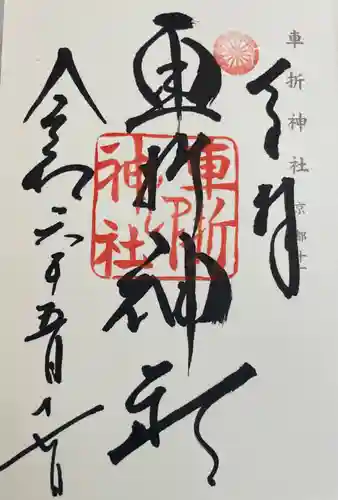 車折神社
京都
奉拝
車折神社
車折神社
令和六年五月十七日